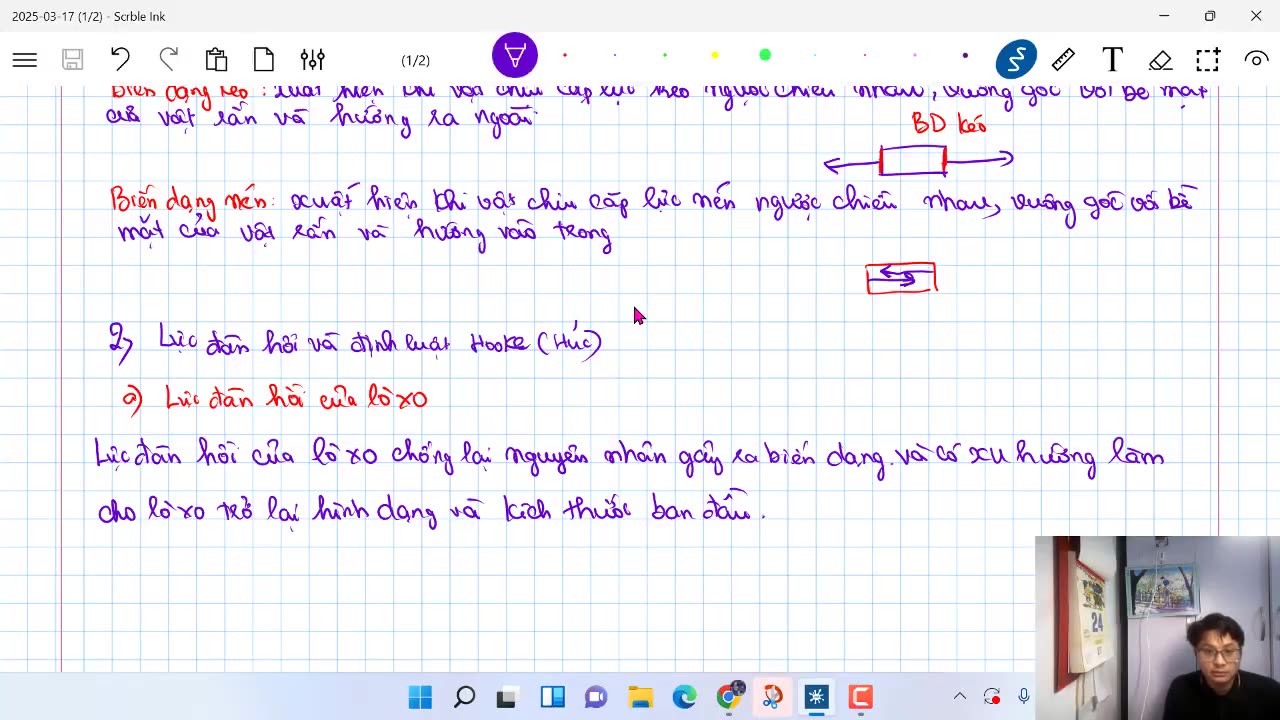 2025-03-17 (1/2) - Scrble Ink
(1/2)
T
Biến dạng kéo : xuất hiện khi vật chịu cặp lực kéo ngược chiều nhau, vuông góc với bề mặt
của vật rắn và hướng ra ngoài
BD kéo
Biến dạng nén: xuất hiện khi vật chịu cặp lực nén ngược chiều nhau, vuông góc với bề
mặt của vật rắn và hướng vào trong
2) Lực đàn hồi và định luật Hooke (Húc)
a) Lực đàn hồi của lò xo
Lực đàn hồi của lò xo chống lại nguyên nhân gây ra biến dạng và có xu hướng làm
cho lò xo trở lại hình dạng và kích thước ban đầu.
24